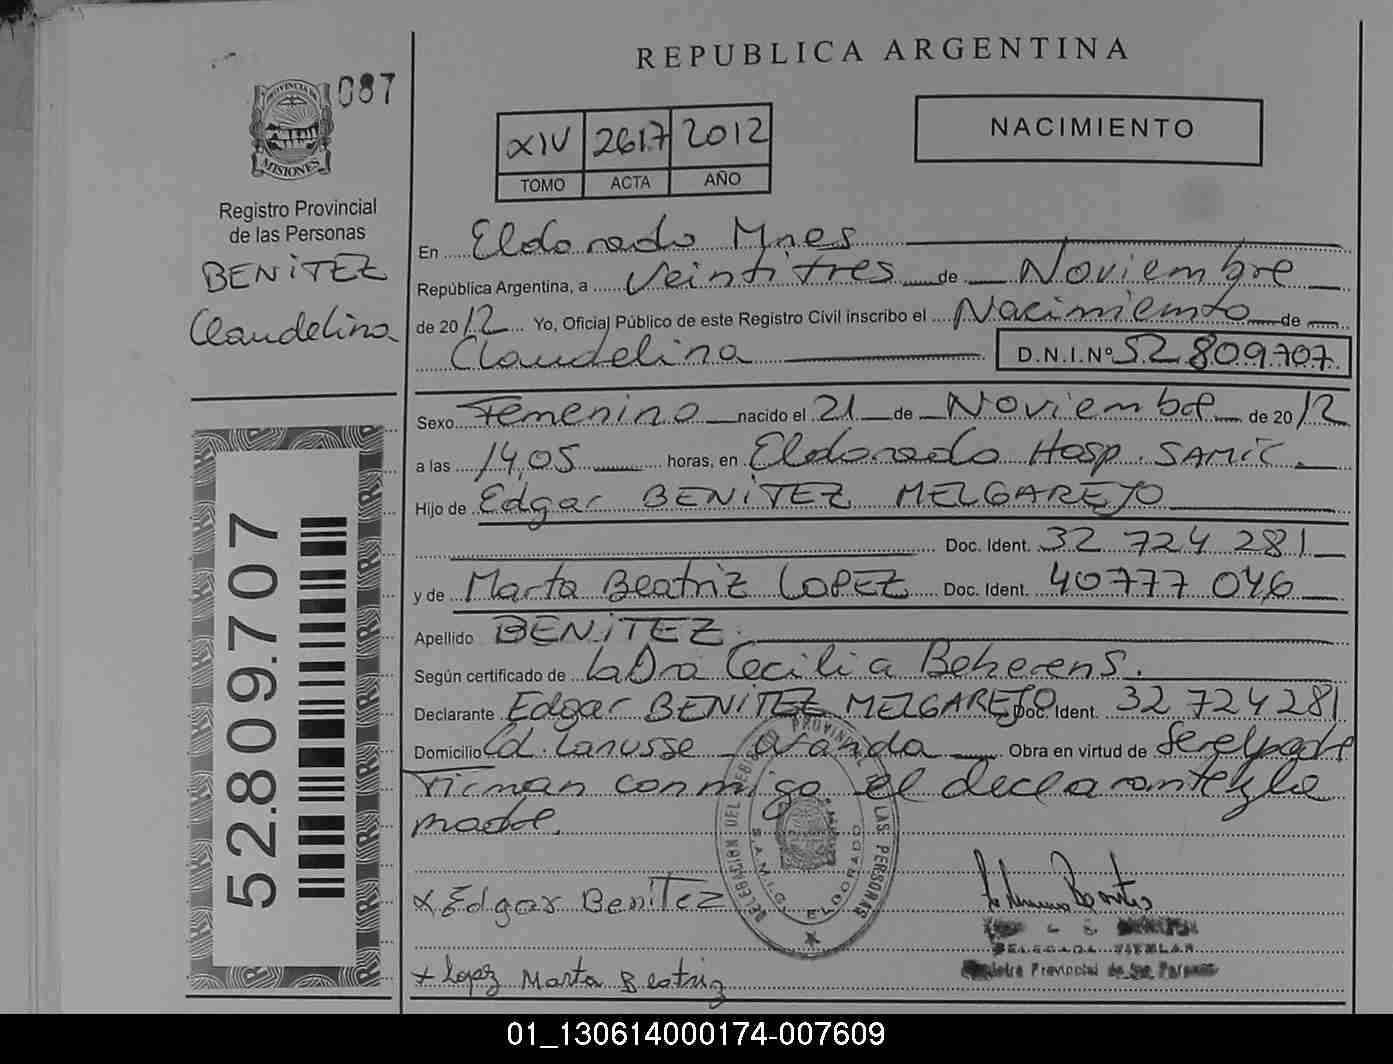 087
PROVINCIA DE
MISIONES
Registro Provincial
de las Personas
BENiTEZ
Claudelina
52.809.707
REPUBLICA ARGENTINA
XIV 2617 2012
TOMO ACTA AÑO
NACIMIENTO
En Eldorado Mnes
República Argentina, a Veintitres de Noviembre
de 2012 Yo, Oficial Público de este Registro Civil inscribo el Nacimiento de
Claudelina D.N.I.Nº 52 809.707
Sexo Femenino nacido el 21 de Noviembre de 2012
a las 14,05 horas, en Eldorado Hosp. SAMIC
Hijo de Edgar BENiTEZ MELGAREJO
Doc. Ident. 32 724 281
y de Marta Beatriz LOPEZ Doc. Ident. 40777 046
Apellido BENiTEZ
Según certificado de la Dra Cecilia Beherens.
Declarante Edgar BENiTEZ MELGAREJO Doc. Ident. 32 724281
Domicilio Cd. Lanusse Obra en virtud de Ser el padre
Firman conmigo el declarante y la
madre.
DELEGACION DEL REGISTRO PROVINCIAL DE LAS PERSONAS
S.A.M.I.C. ELDORADO
x Edgar BeniTez
+ Lopez Marta Beatriz
Provincial de las Personas
01_130614000174-007609